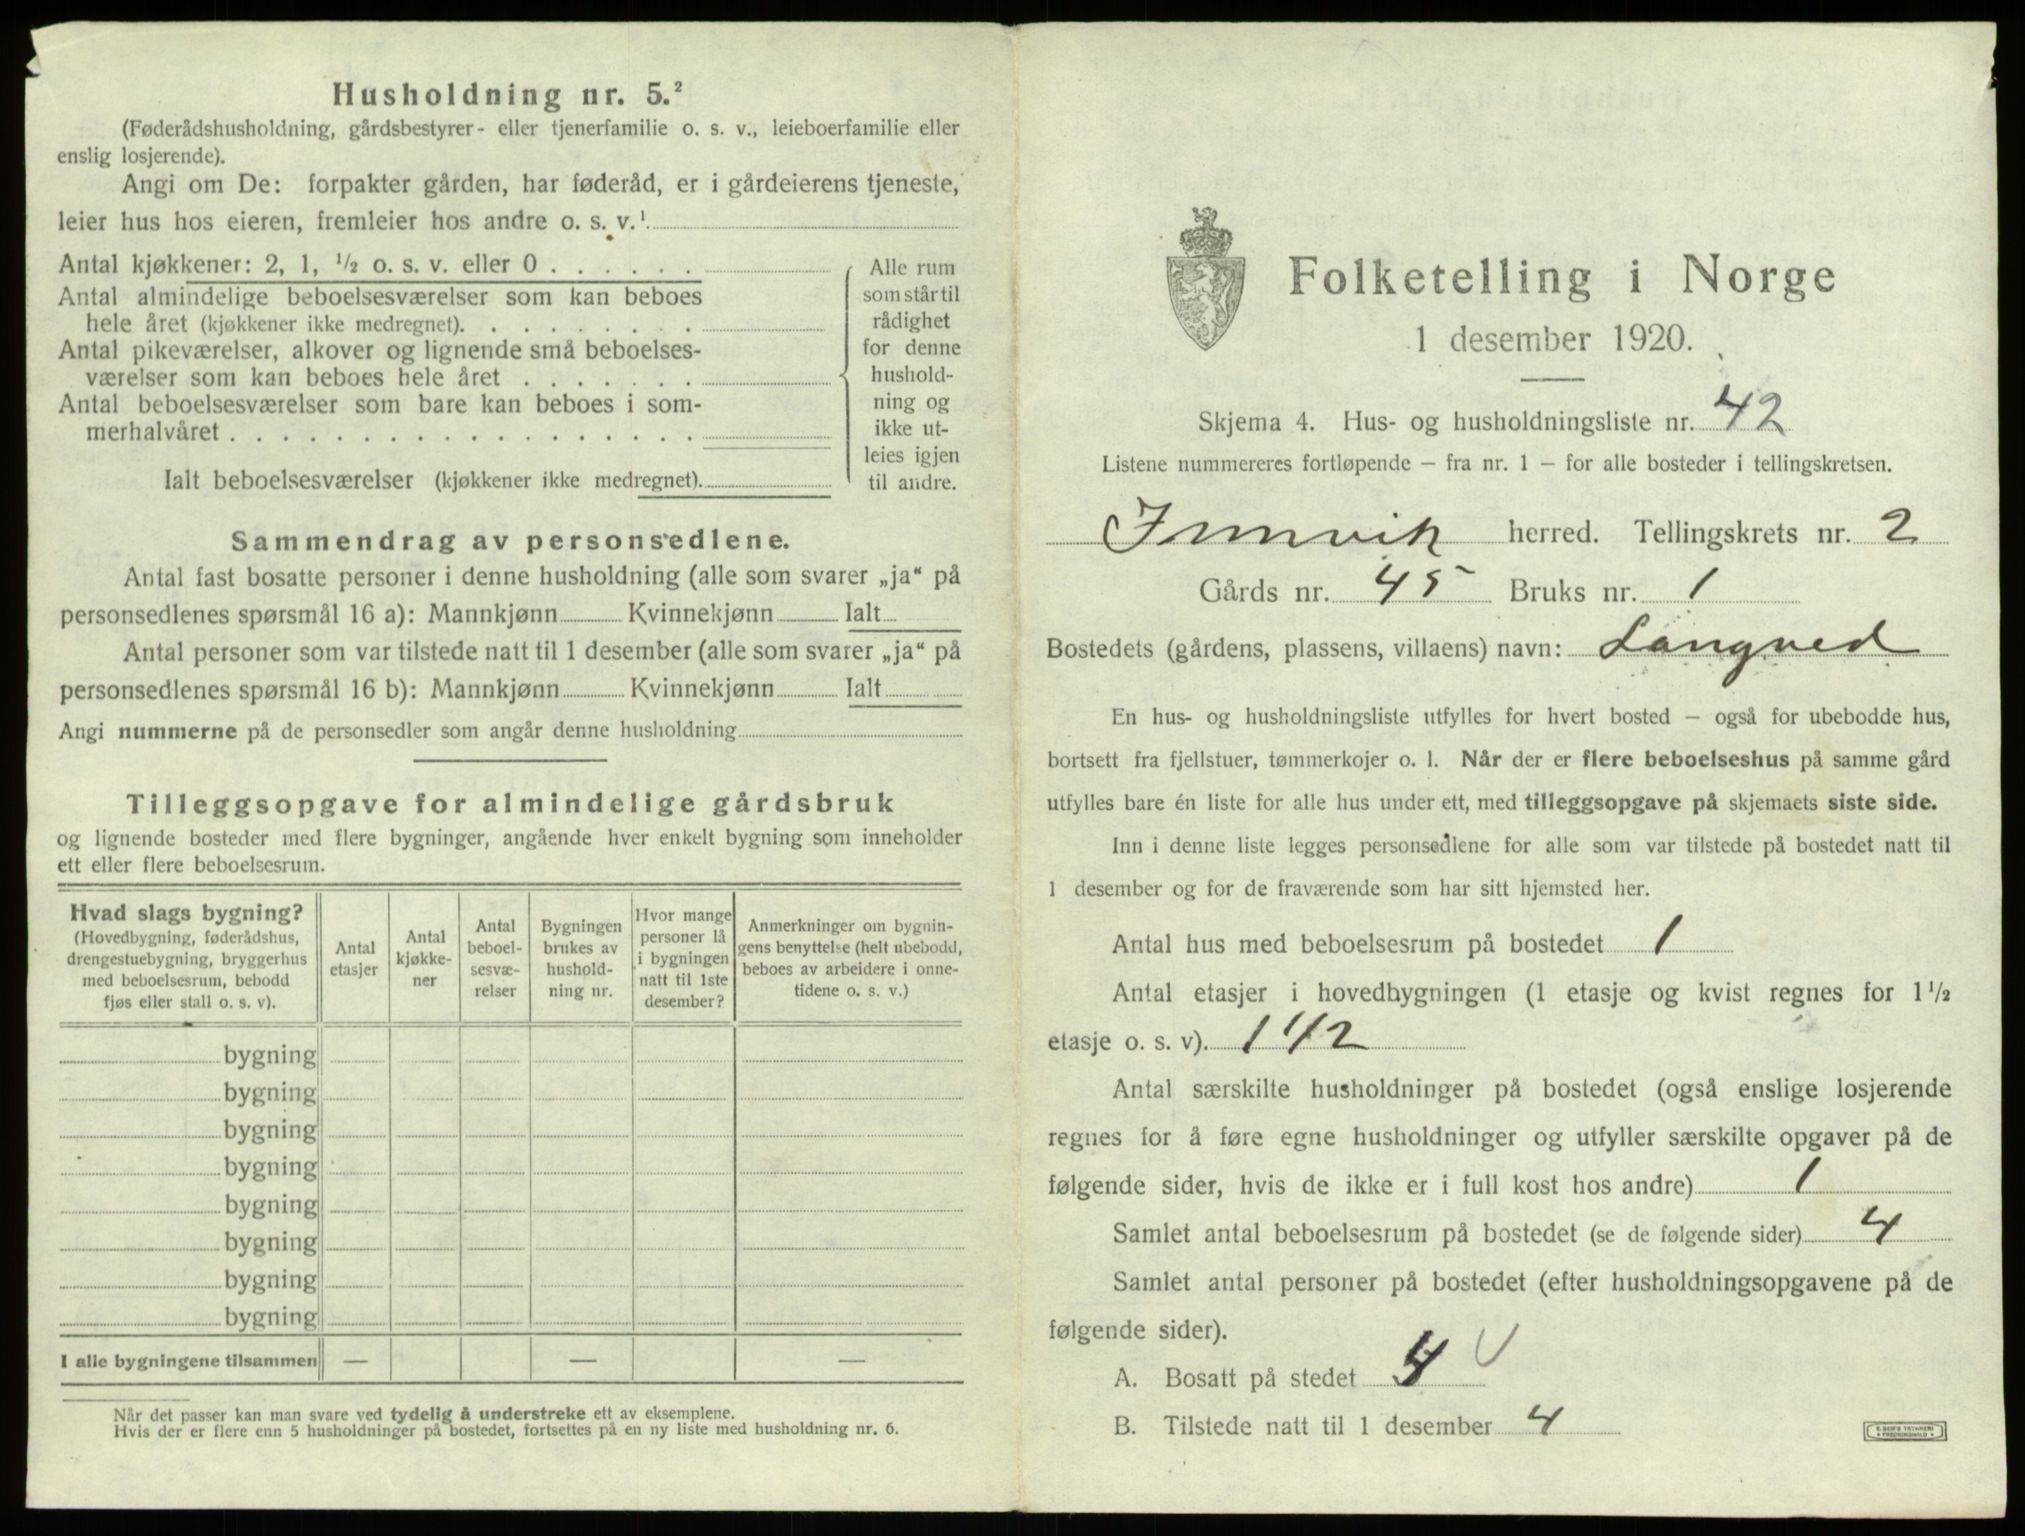 Husholdning nr. 5.²
(Føderådshusholdning, gårdsbestyrer- eller tjenerfamilie o. s. v., leieboerfamilie eller
enslig losjerende).
Angi om De: forpakter gården, har føderåd, er i gårdeierens tjeneste,
leier hus hos eieren, fremleier hos andre o. s. v.¹
Antal kjøkkener: 2, 1, ½ o. s. v. eller 0 . . . . . .
Antal almindelige beboelsesværelser som kan beboes
hele året (kjøkkener ikke medregnet). . . . . . . . .
Antal pikeværelser, alkover og lignende små beboelses-
værelser som kan beboes hele året . . . . . . .
Antal beboelsesværelser som bare kan beboes i som-
merhalvåret . . . . . . . . . . . . . . . . . .
Ialt beboelsesværelser (kjøkkener ikke medregnet).
Alle rum
som står til
rådighet
for denne
hushold-
ning og
ikke ut-
leies igjen
til andre.
Sammendrag av personsedlene.
Antal fast bosatte personer i denne husholdning (alle som svarer „ja“ på
personsedlenes spørsmål 16 a): Mannkjønn Kvinnekjønn Ialt
Antal personer som var tilstede natt til 1 desember (alle som svarer „ja“ på
personsedlenes spørsmål 16 b): Mannkjønn Kvinnekjønn Ialt
Angi nummerne på de personsedler som angår denne husholdning
Tilleggsopgave for almindelige gårdsbruk
og lignende bosteder med flere bygninger, angående hver enkelt bygning som inneholder
ett eller flere beboelsesrum.
Hvad slags bygning?
(Hovedbygning, føderådshus,
drengestuebygning, bryggerhus
med beboelsesrum, bebodd
fjøs eller stall o. s. v).
Antal
etasjer
Antal
kjøkke-
ner
Antal
beboel-
sesvæ-
relser
Bygningen
brukes av
hushold-
ning nr.
Hvor mange
personer lå
i bygningen
natt til 1ste
desember?
Anmerkninger om bygnin-
gens benyttelse (helt ubebodd,
beboes av arbeidere i onne-
tidene o. s. v.)
bygning
bygning
bygning
bygning
bygning
bygning
bygning
bygning
I alle bygningene tilsammen — — —
Når det passer kan man svare ved tydelig å understreke ett av eksemplene.
Hvis der er flere enn 5 husholdninger på bostedet, fortsettes på en ny liste med husholdning nr. 6.
Folketelling i Norge
1 desember 1920.
Skjema 4. Hus- og husholdningsliste nr. 42
Listene nummereres fortløpende – fra nr. 1 – for alle bosteder i tellingskretsen.
Innvik herred. Tellingskrets nr. 2
Gårds nr. 45 Bruks nr. 1
Bostedets (gårdens, plassens, villaens) navn: Langved
En hus- og husholdningsliste utfylles for hvert bosted – også for ubebodde hus,
bortsett fra fjellstuer, tømmerkojer o. l. Når der er flere beboelseshus på samme gård
utfylles bare én liste for alle hus under ett, med tilleggsopgave på skjemaets siste side.
Inn i denne liste legges personsedlene for alle som var tilstede på bostedet natt til
1 desember og for de fraværende som har sitt hjemsted her.
Antal hus med beboelsesrum på bostedet 1
Antal etasjer i hovedbygningen (1 etasje og kvist regnes for 1 ½
etasje o. s. v). 1 1/2
Antal særskilte husholdninger på bostedet (også enslige losjerende
regnes for å føre egne husholdninger og utfyller særskilte opgaver på de
følgende sider, hvis de ikke er i full kost hos andre) 1
Samlet antal beboelsesrum på bostedet (se de følgende sider) 4
Samlet antal personer på bostedet (efter husholdningsopgavene på de
følgende sider).
A. Bosatt på stedet 4
B. Tilstede natt til 1 desember 4